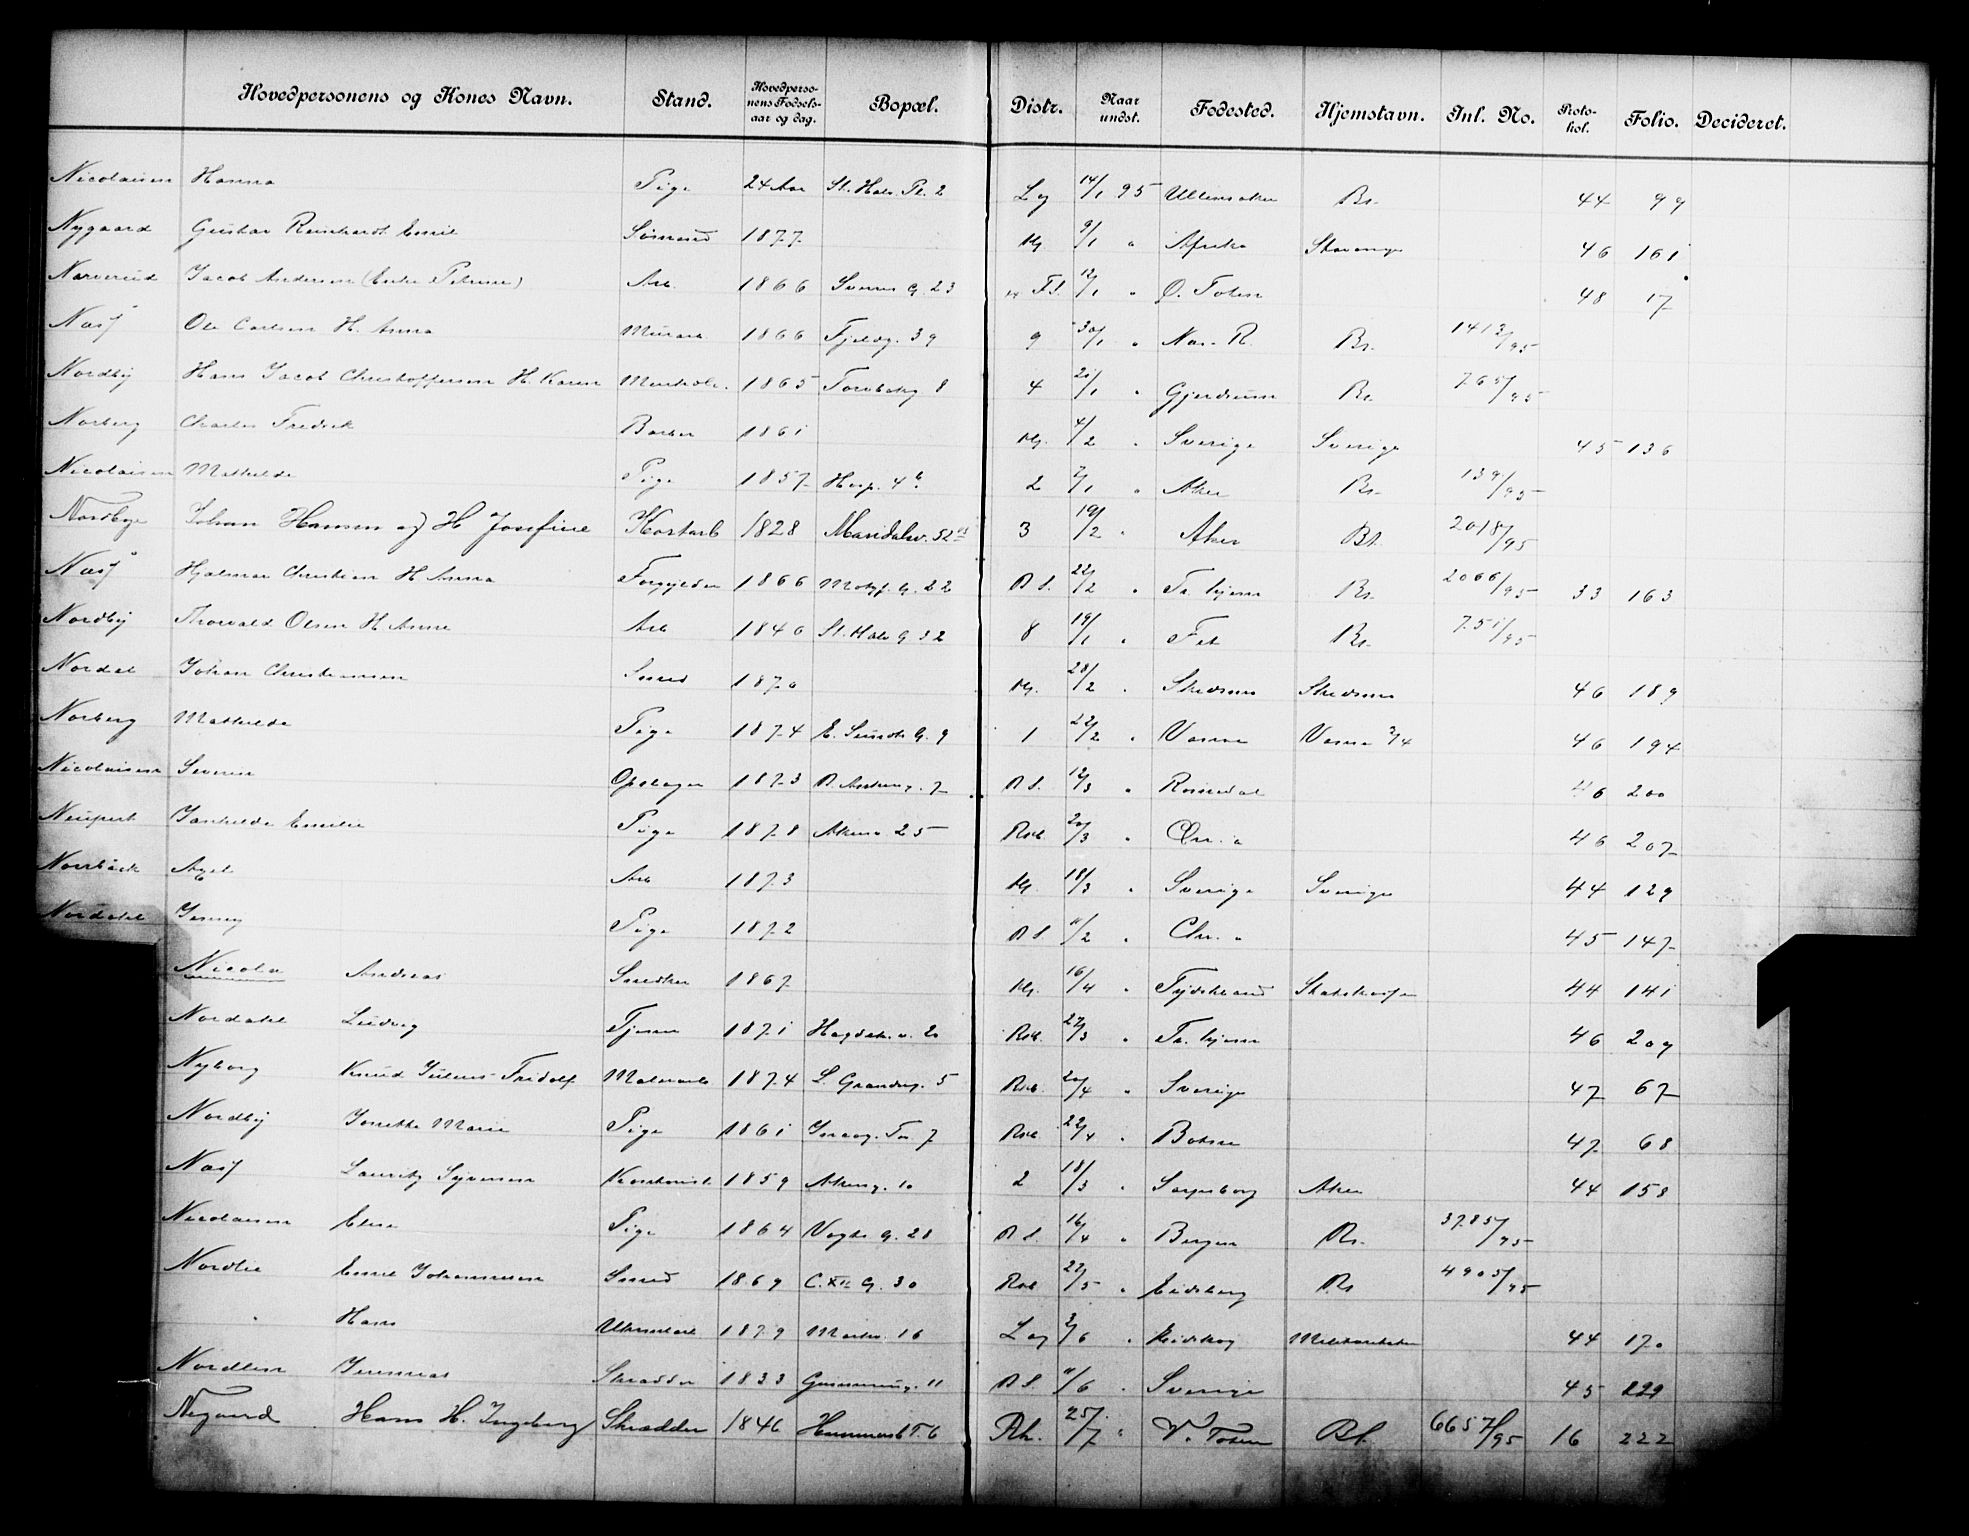 Hovedpersonens og Kones Navn. Stand. Hovedpersonens Fødsels-aar og dag. Bopæl. Distr. Naar undst. Fødested. Hjemstavn. Inl. No. Protokol. Folio. Decideret.
Nicolaisen Hanna Pige 24 Aar St. Halv. Pl. 2 Lg 14/1 95 Ullensaker Bs. 44 99
Nygaard Gustav Reinhardt Emil Sømand 1877 9/1 " Afrika Stavanger 46 161
Narverud Jacob Andersen (Enke Petrine) Arb. 1866 Sverres G. 23 12/1 " Ø. Toten 48 17
Næs Ole Carlsen H. Anna Murarb 1866 Fjeldg. 39 9 30/1 " Nas. R. Bs. 1413/95
Nordby Hans Jacob Christoffersen H. Karen 1865 Torvbakg 8 4 21/1 " Gjerdrum Bs. 765/95
Norberg Charles Fredrik Barber 1861 4/2 " Sverige Sverige 45 136
Nicolaisen Mathilde Pige 1857 Hosp. 4b. 2 7/1 " Aker Bs. 139/95
Nordbye Johan Hansen og H Josefine Kostarb 1828 Maridalsv. 52 3 19/2 " Aker Bs. 2018/95
Næs Hjalmar Christian H Anna Forgylder 1866 Motzf. G. 22 B S. 22/2 " Tr. hjem Bs. 2066/95 33 163
Nordby Thorvald Olsen H Anne Arb 1840 St. Halv G 32 8 19/1 " Fet Bs. 751/95
Nordal Johan Christiansen Smed 1870 28/2 " Skedsmo Skedsmo 46 189
Norberg Mathilde Pige 1874 E. Sundts G. 9 1 22/2 " Vanse Vanse 2/4 46 194
Nicolaisen Severin Opslager 1873 7 B S. 12/3 " Romedal 46 200
Neupert Janhilda Emilie Pige 1878 Akersv. 25 Rsb. 20/3 " Chr. a 46 207
Norrbäck Axel Arb 1873 18/3 " Sverige Sverige 44 129
Nordahl Jenny Pige 1872 B S. 11/2 " Chr. a 45 147
Nicola Andreas Snedker 1867 16/4 " Tydskland 44 141
Nordahl Ludvig Tjener 1871 Hegdeh. v. 20 Rsb. 27/3 " Tr. hjem 46 209
Nyborg Knud Julius Fridolf Malerarb 1874 L. Grændsg. 5 Rsb. 20/4 " Sverige 47 67
Nordby Jonette Marie Pige 1861 7 Rsb 22/4 " Botne 47 68
Næs Lauritz Syversen 1859 Akersg. 10 2 18/3 " Sarpsborg Aker 44 158
Nicolaisen Elise Pige 1864 Vogts G. 28 B S. 16/4 " Bergen Bs. 3785/95
Nordlie Emil Johannesen Smed 1869 C. XII G. 30 Rsb 22/5 " Eidsberg Bs 4905/95
" Hans 1879 Markv. 16 Lg 2/6 " Eidskog 44 170
Nordlien Jeremias Skrædder 1833 Grønning. 11 B S. 11/6 " Sverige 45 229
Nygaard Hans H. Ingeborg Skrædder 1846 Hammersb T. 6 Rh. 25/7 " V. Toten Bs. 6657/95 16 222